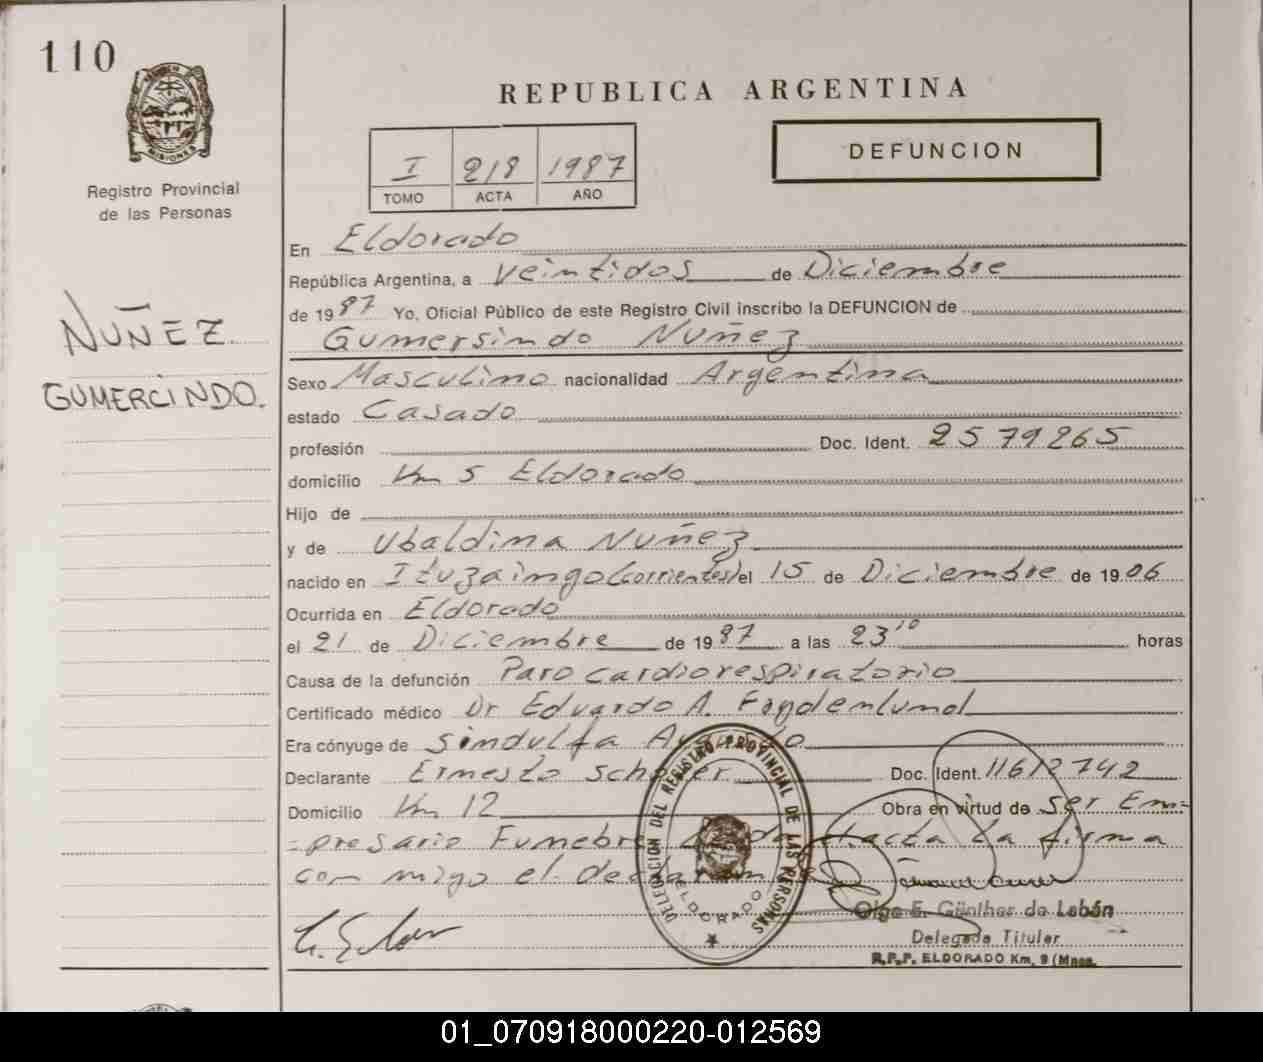 110
MISIONES
Registro Provincial
de las Personas
NUÑEZ
GUMERCINDO.
REPUBLICA ARGENTINA
I 218 1987
TOMO ACTA AÑO
DEFUNCION
En Eldorado
República Argentina, a Veintidos de Diciembre
de 1987 Yo, Oficial Público de este Registro Civil inscribo la DEFUNCION de
Gumersindo Nuñez
Sexo Masculino nacionalidad Argentina
estado Casado
profesión Doc. Ident. 2579265
domicilio Km 5 Eldorado
Hijo de
y de Ubaldina Nuñez
nacido en Ituzaingo (corrientes) el 15 de Diciembre de 1906
Ocurrida en Eldorado
el 21 de Diciembre de 1987 a las 23'10 horas
Causa de la defunción Paro cardiorespiratorio
Certificado médico Dr Eduardo A.
Era cónyuge de Sindulfa
Declarante Ernesto Doc. Ident. 11612742
Domicilio Km 12 Obra en virtud de ser Em=
=presario Funebre Leida el acta la firma
conmigo el
DELEGACION DEL REGISTRO PROVINCIAL DE LAS PERSONAS
ELDORADO
Olga E. Günther de Lebán
Delegada Titular
R.P.P. ELDORADO Km. 9 (Mnes.
01_070918000220-012569